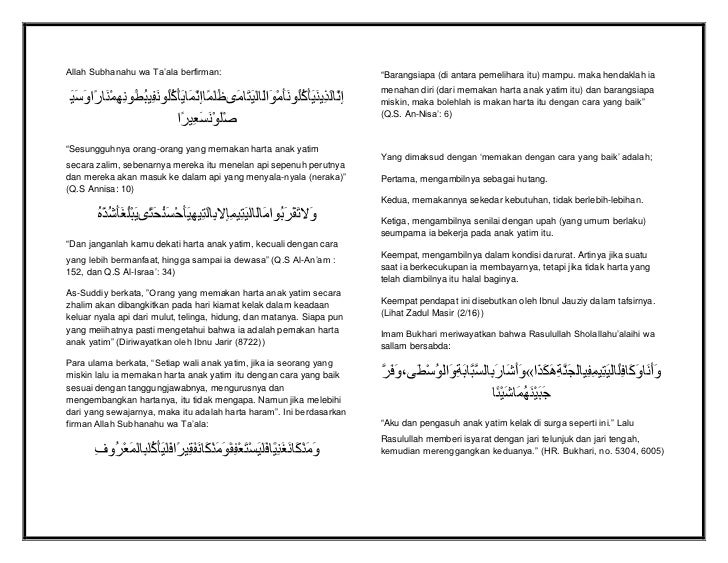 Allah Subhanahu wa Ta’ala berfirman:
إِنَّالَّذِينَيَأْكُلُونَأَمْوَالَالْيَتَامَىظُلْمًاإِنَّمَايَأْكُلُونَفِيبُطُونِهِمْنَارًاوَسَيَ
صْلَوْنَسَعِيرًا
“Sesungguhnya orang-orang yang memakan harta anak yatim
secara zalim, sebenarnya mereka itu menelan api sepenuh perutnya
dan mereka akan masuk ke dalam api yang menyala-nyala (neraka)”
(Q.S Annisa: 10)
وَلَاتَقْرَبُوامَالَالْيَتِيمِإِلَّابِالَّتِيهِيَأَحْسَنُحَتَّىيَبْلُغَأَشُدَّهُ
“Dan janganlah kamu dekati harta anak yatim, kecuali dengan cara
yang lebih bermanfaat, hingga sampai ia dewasa” (Q.S Al-An’am :
152, dan Q.S Al-Israa’: 34)
As-Suddiy berkata, ”Orang yang memakan harta anak yatim secara
zhalim akan dibangkitkan pada hari kiamat kelak dalam keadaan
keluar nyala api dari mulut, telinga, hidung, dan matanya. Siapa pun
yang meiihatnya pasti mengetahui bahwa ia adalah pemakan harta
anak yatim” (Diriwayatkan oleh Ibnu Jarir (8722))
Para ulama berkata, “Setiap wali anak yatim, jika ia seorang yang
miskin lalu ia memakan harta anak yatim itu dengan cara yang baik
sesuai dengan tanggungjawabnya, mengurusnya dan
mengembangkan hartanya, itu tidak mengapa. Namun jika melebihi
dari yang sewajarnya, maka itu adalah harta haram”. Ini berdasarkan
firman Allah Subhanahu wa Ta’ala:
وَمَنْكَانَغَنِيًّافَلْيَسْتَعْفِفْوَمَنْكَانَفَقِيرًافَلْيَأْكُلْبِالْمَعْرُوفِ
“Barangsiapa (di antara pemelihara itu) mampu. maka hendaklah ia
menahan diri (dari memakan harta anak yatim itu) dan barangsiapa
miskin, maka bolehlah is makan harta itu dengan cara yang baik”
(Q.S. An-Nisa’: 6)
Yang dimaksud dengan ‘memakan dengan cara yang baik’ adalah;
Pertama, mengambilnya sebagai hutang.
Kedua, memakannya sekedar kebutuhan, tidak berlebih-lebihan.
Ketiga, mengambilnya senilai dengan upah (yang umum berlaku)
seumpama ia bekerja pada anak yatim itu.
Keempat, mengambilnya dalam kondisi darurat. Artinya jika suatu
saat ia berkecukupan ia membayarnya, tetapi jika tidak harta yang
telah diambilnya itu halal baginya.
Keempat pendapat ini disebutkan oleh Ibnul Jauziy dalam tafsirnya.
(Lihat Zadul Masir (2/16))
Imam Bukhari meriwayatkan bahwa Rasulullah Sholallahu’alaihi wa
sallam bersabda:
وَأَنَاوَكَافِلُالْيَتِيمِفِيالْجَنَّةِهَكَذَا»وَأَشَارَبِالسَّبَّابَةِوَالْوُسْطَى،وَفَرَّ
جَبَيْنَهُمَاشَيْئًا
“Aku dan pengasuh anak yatim kelak di surga seperti ini.” Lalu
Rasulullah memberi isyarat dengan jari telunjuk dan jari tengah,
kemudian merenggangkan keduanya.” (HR. Bukhari, no. 5304, 6005)